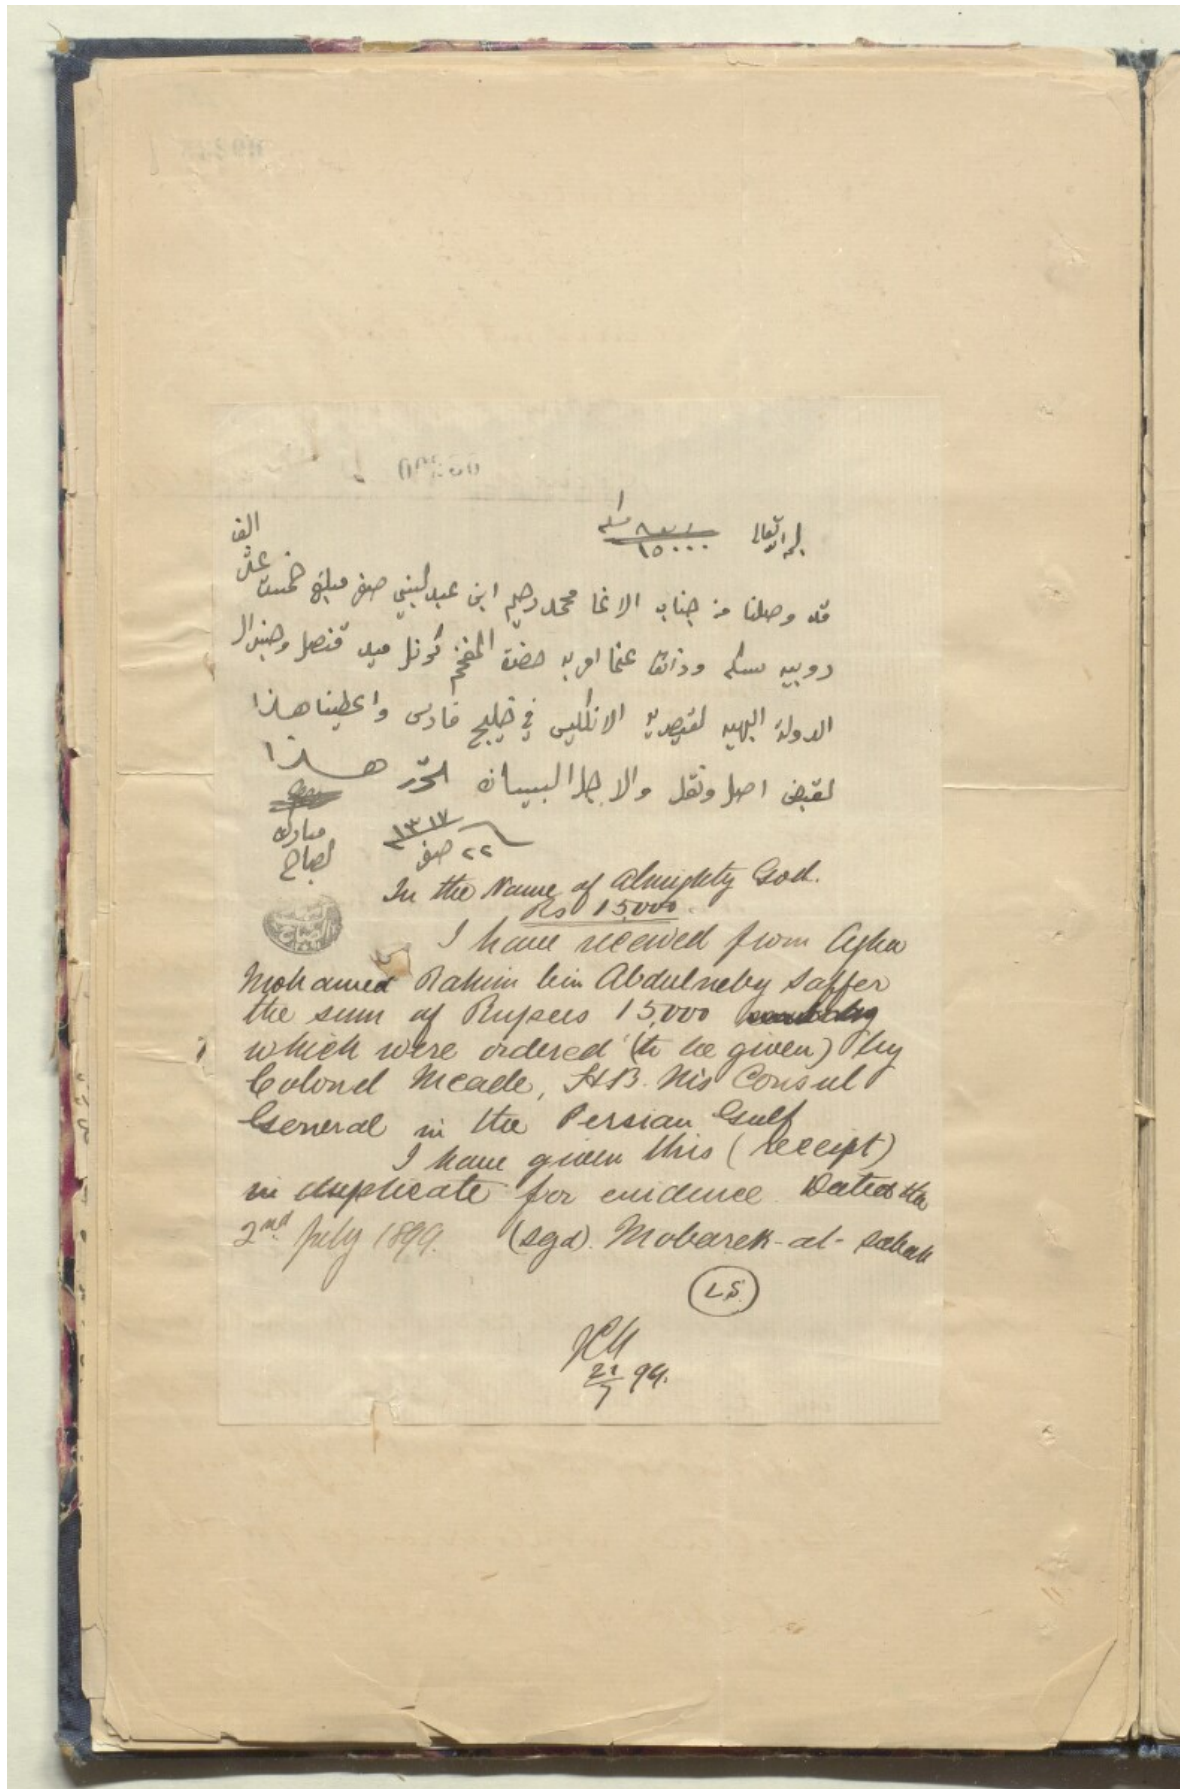 بسم الله تعالى
١٥٠٠٠
قد وصلنا من جناب الاغا محمد رحيم ابن عبد لنبي صفر مبلغ خمسة عشر الف
روبيه سكه وذالك عنما امر به حضرة المفخم كرنل ميد قنصل وجنرال
الدولة البهيه لقيصريه الانكليس في خليج فارس واعطينا هذا
لقبض اصل ونقل والاجل البيان تحرر هذا
٢٢ صفر ١٣١٧
مبارك
لصباح
In the Name of Almighty God.
Rs 15,000.
I have received from Agha
Mohamed Rahim bin Abdulneby Saffer
the sum of Rupees 15,000
which were ordered (to be given) by
Colonel Meade, H.B. M's Consul
General in the Persian Gulf
I have given this (receipt)
in duplicate for evidence. Dated the
2nd July 1899. (sgd). Mobarek-al-Sabah
L.S.
21/7 99.